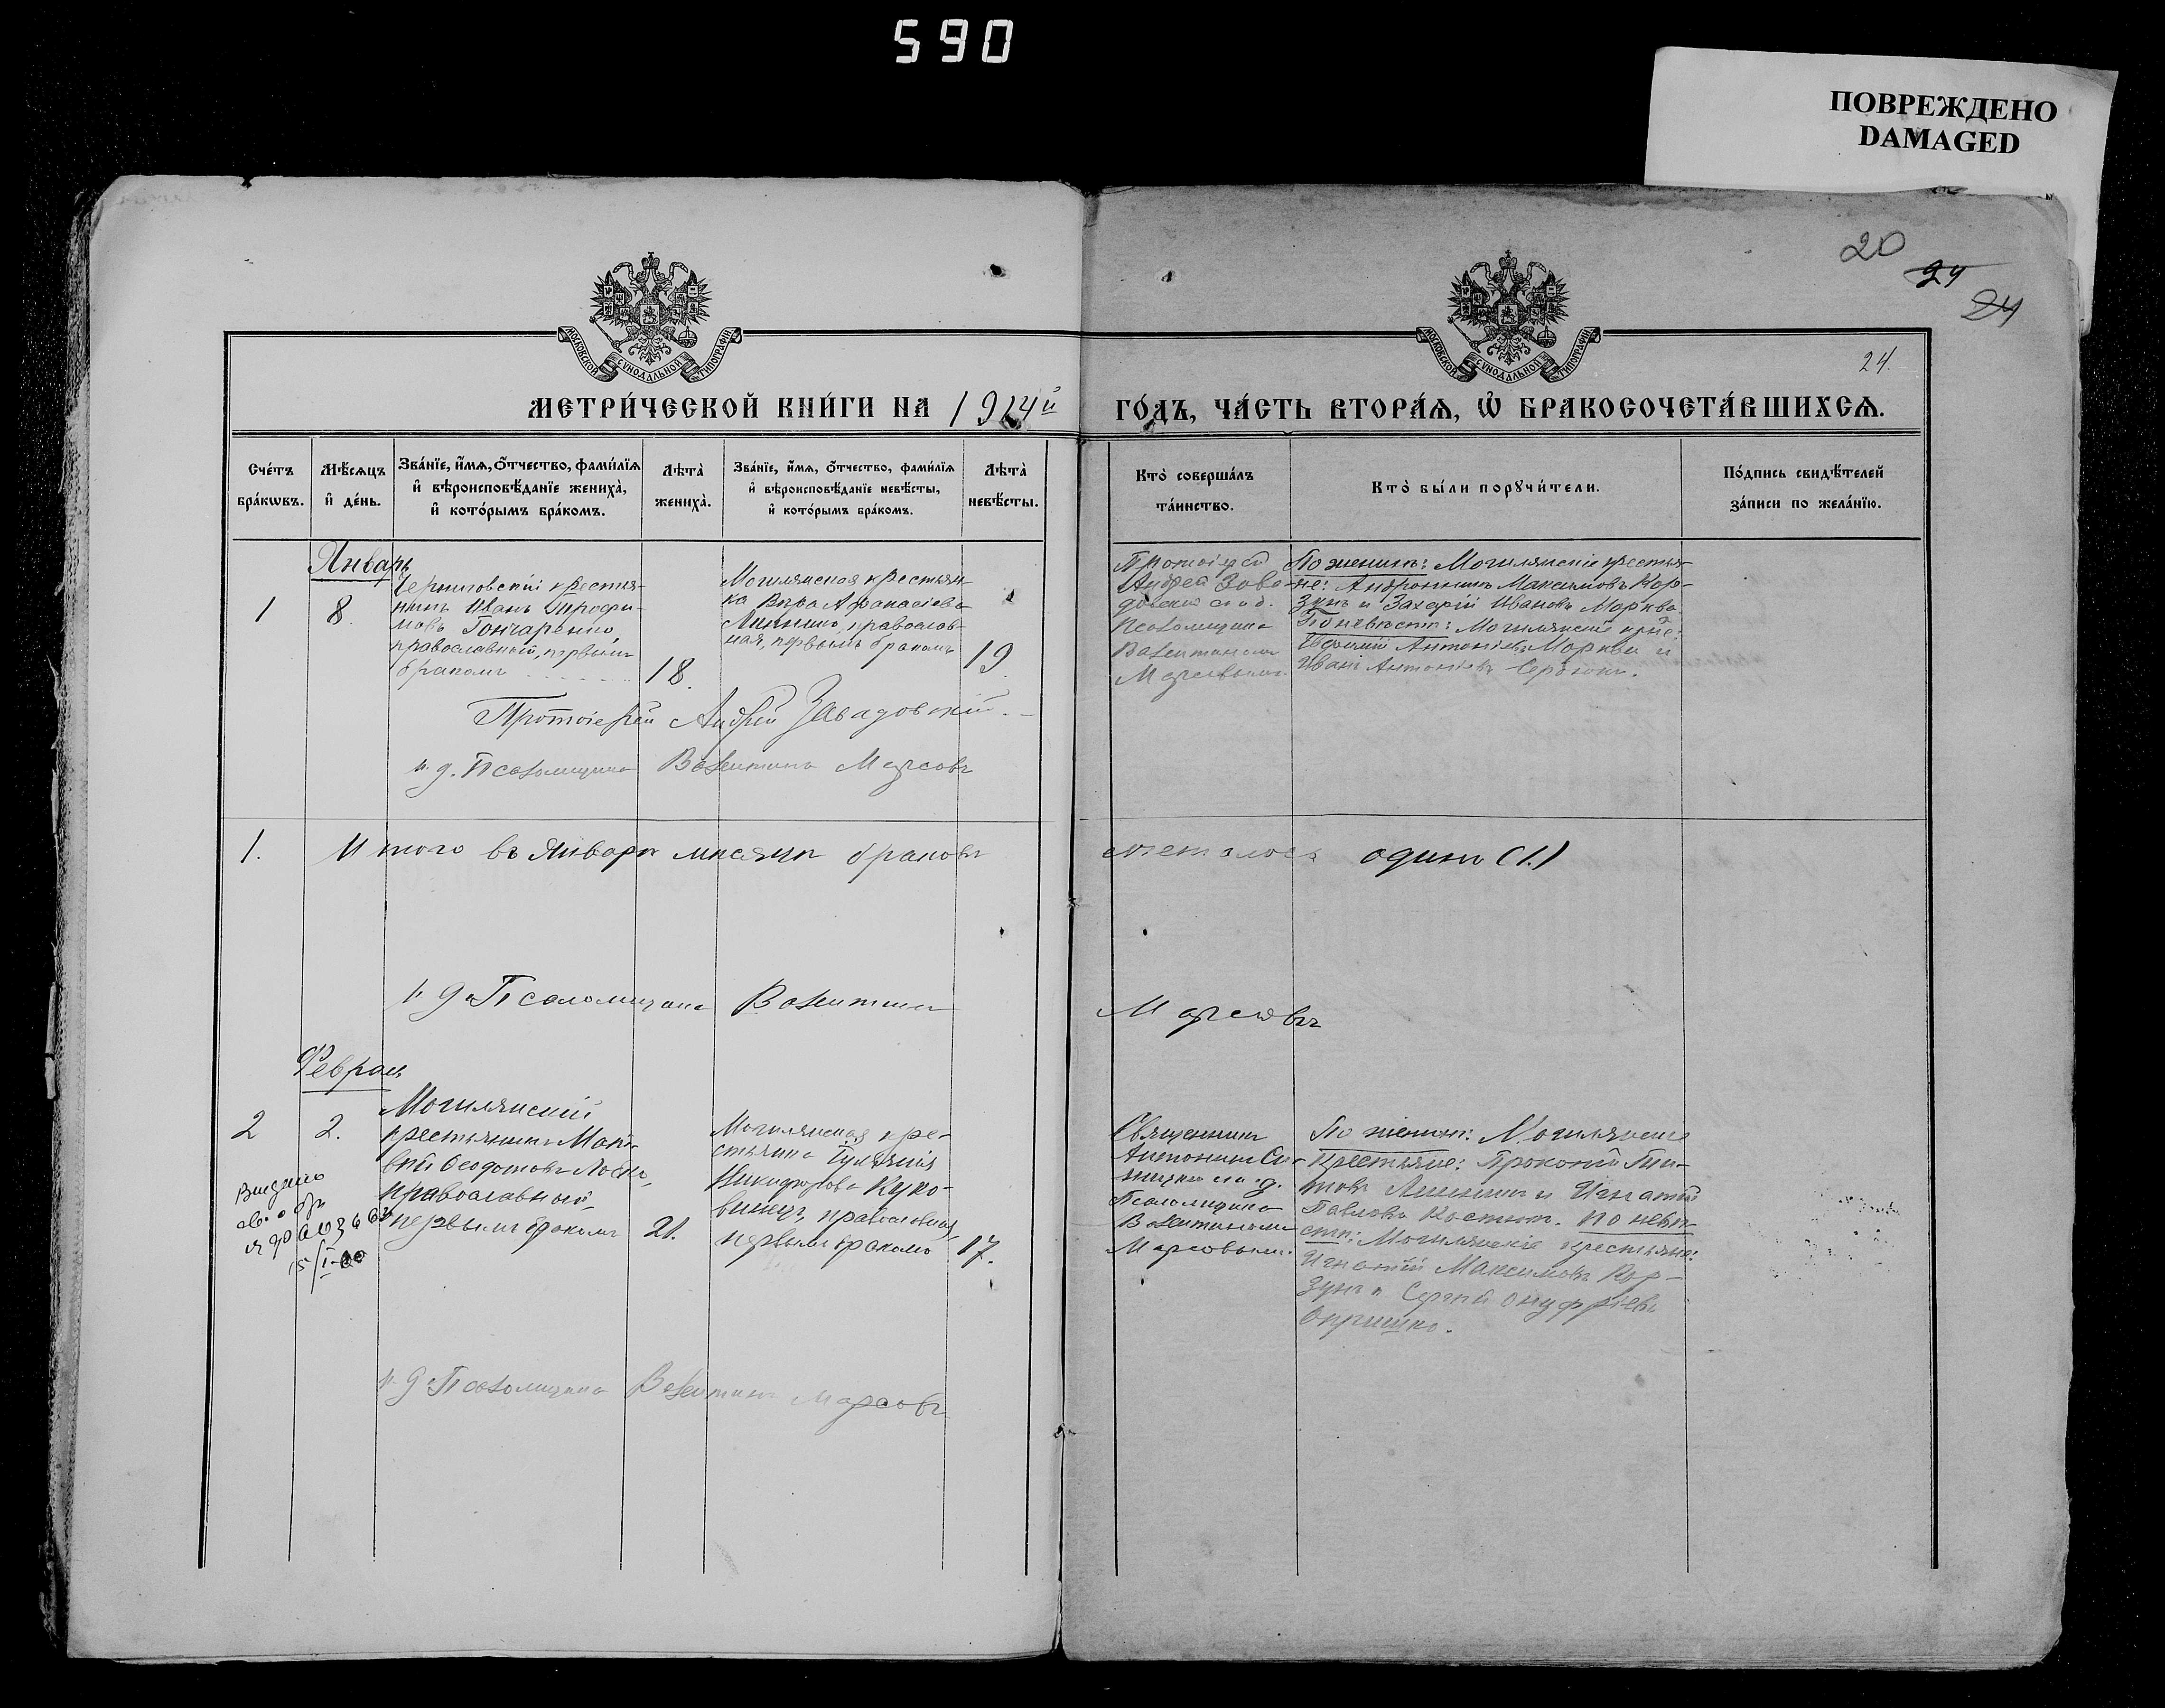 590
ПОВРЕЖДЕНО
DAMAGED
20
24
24
МОСКОВСКОЙ СѴНОДАЛЬНОЙ ТИПОГРАФІИ
МОСКОВСКОЙ СѴНОДАЛЬНОЙ ТИПОГРАФІИ
24.
МЕТРИ́ЧЕСКОЙ КНИ́ГИ НА 1914й
ГО́ДЪ, ЧА́СТЬ ВТОРА́Ѧ, Ѽ БРАКОСОЧЕТА́ВШИХСѦ.
Сче́тъ
бра́кωвъ.
Мѣ́сѧцъ
и҆ де́нь.
Зва́нїе, и҆́мѧ, ѻ҆́тчество, фами́лїѧ
и҆ вѣроисповѣ́данїе жениха̀,
и҆ кото́рымъ бра́комъ.
Лѣта̀
жениха̀.
Зва́нїе, и҆́мѧ, ѻ҆́тчество, фами́лїѧ
и҆ вѣроисповѣ́данїе невѣ́сты,
и҆ кото́рымъ бра́комъ.
Лѣта̀
невѣ́сты.
Кто̀ соверша́лъ
та́инство.
Кто̀ бы́ли порꙋчи́тели.
По́дпись свидѣ́телей
за́писи по жела́нїю.
Январь
1
8.
крестья-
нинъ Иванъ
Гончаренко,
православный, первымъ
бракомъ
18.
Могилянская крестьян-
ка Вѣра Афанасіева
православ-
ная, первымъ бракомъ
19.
Протоіерей
Андрей Зава-
довскій съ и. д.
Псаломщика
Валентиномъ
Марсовымъ.
По женихѣ: Могилянскіе крестья-
не: Андроникъ Максимовъ Кор-
зунъ и Захарій Ивановъ Морква.
По невѣстѣ: Могилянскіе
Антоніевъ Морква и
Иванъ Антоніевъ
Протоіерей Андрей Завадовскій.
и. д. Псаломщика Валентинъ Марсовъ
1. Итого въ Январѣ мѣсяцѣ браковъ
состоялось одинъ (1.)
и. д. Псаломщика Валентинъ
Марсовъ
Февраль
2
2.
Могилянскій
крестьянинъ
православный,
первымъ бракомъ
21.
Выдано
5/I-
Могилянская кре-
стьянка
Никифорова Куко-
православная,
первымъ бракомъ
17.
Священникъ
Антонинъ
съ и. д.
Псаломщика
Валентиномъ
Марсовымъ.
По женихѣ: Могилянскіе
крестьяне: Прокопій Ти-
товъ и Игнатій
Павловъ Костюкъ. По невѣ-
стѣ: Могилянскіе крестьяне:
Игнатій Максимовъ Кор-
зунъ и Сергій Онуфріевъ
Опришко.
и. д. Псаломщика Валентинъ Марсовъ